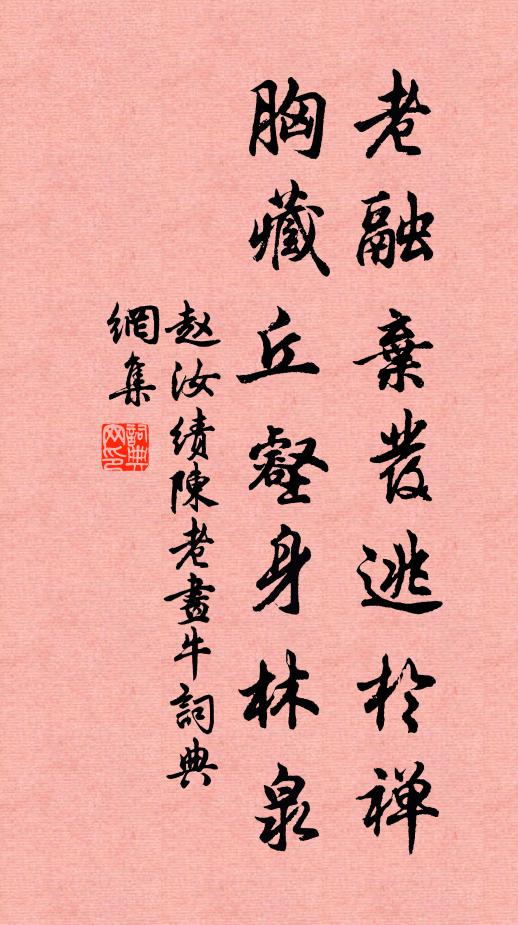 老融棄發逃於禅
胸藏丘壑身林泉
赵汝績陳老畫牛詞典
網集
詞典
网印